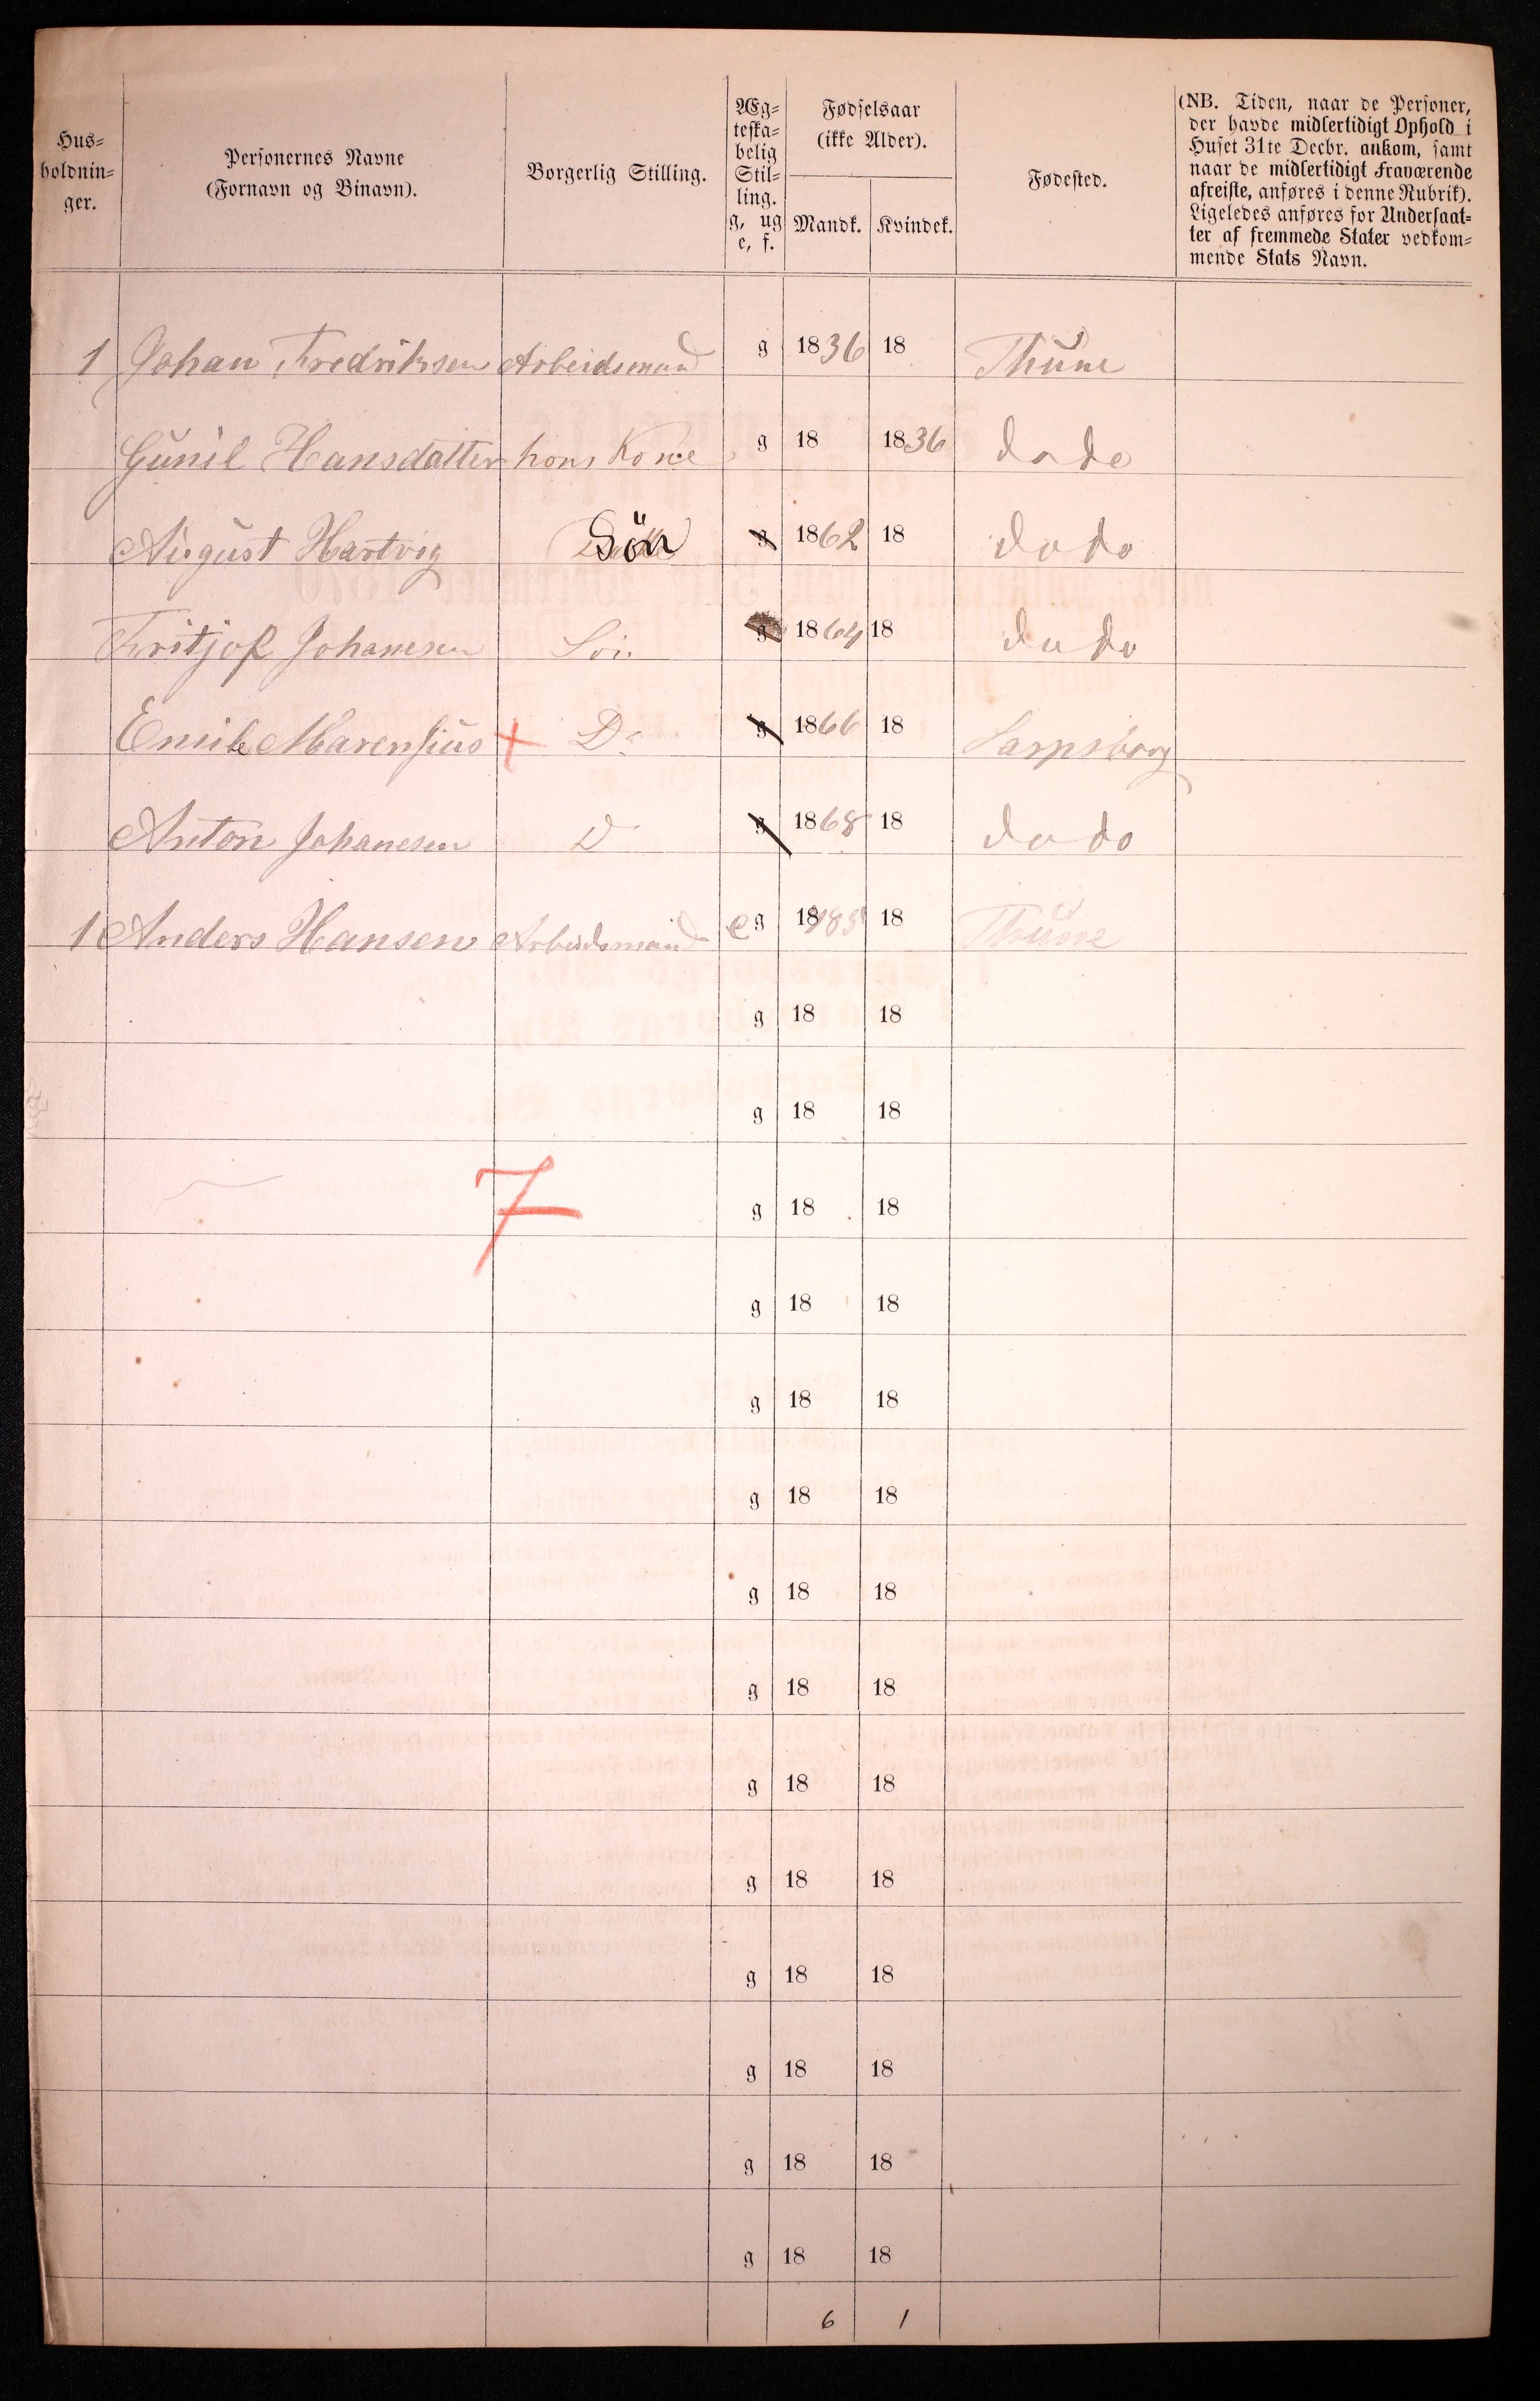 Hus=
holdnin=
ger.
Personernes Navne
(Fornavn og Binavn).
Borgerlig Stilling.
Æg=
teska=
belig
Stil=
ling.
g, ug
e, f.
Fødselsaar
(ikke Alder).
Mandk. Kvindek.
Fødested.
(NB. Tiden, naar de Personer,
der havde midlertidigt Ophold i
Huset 31te Decbr. ankom, samt
naar de midlertidigt Fraværende
afreiste, anføres i denne Rubrik).
Ligeledes anføres for Undersaat=
ter af fremmede Stater vedkom=
mende Stats Navn.
1 Johan Fredriksen Arbeidsmand g 1836 18 Thune
Gunil Hansdatter hans Kone g 18 1836 do do
August Hartvig Sön g 1862 18 do do
Fritjof Johanesen Sön g 1864 18 do do
Emil Marensius + Do g 1866 18 Sarpsborg
Anton Johanesen D g 1868 18 do do
1 Anders Hansen Arbeidsmand e g 18 18 Thune
g 18 18
g 18 18
7 g 18 18
g 18 18
g 18 18
g 18 18
g 18 18
g 18 18
g 18 18
g 18 18
g 18 18
g 18 18
g 18 18
g 18 18
6 1